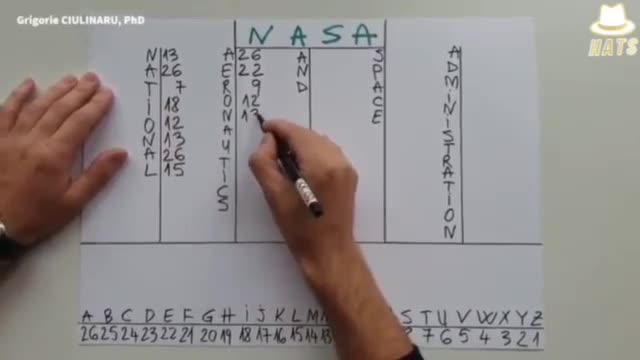 Grigorie CIULINARU, PhD
HATS
NASA
NATIONAL
13
26
7
18
12
13
26
15
AERONAUTICS
26
22
9
12
13
AND
SPACE
ADMINISTRATION
A B C D E F G H i j K L M S T U V W X Y Z
26 25 24 23 22 21 20 19 18 17 16 15 14 13 7 6 5 4 3 2 1